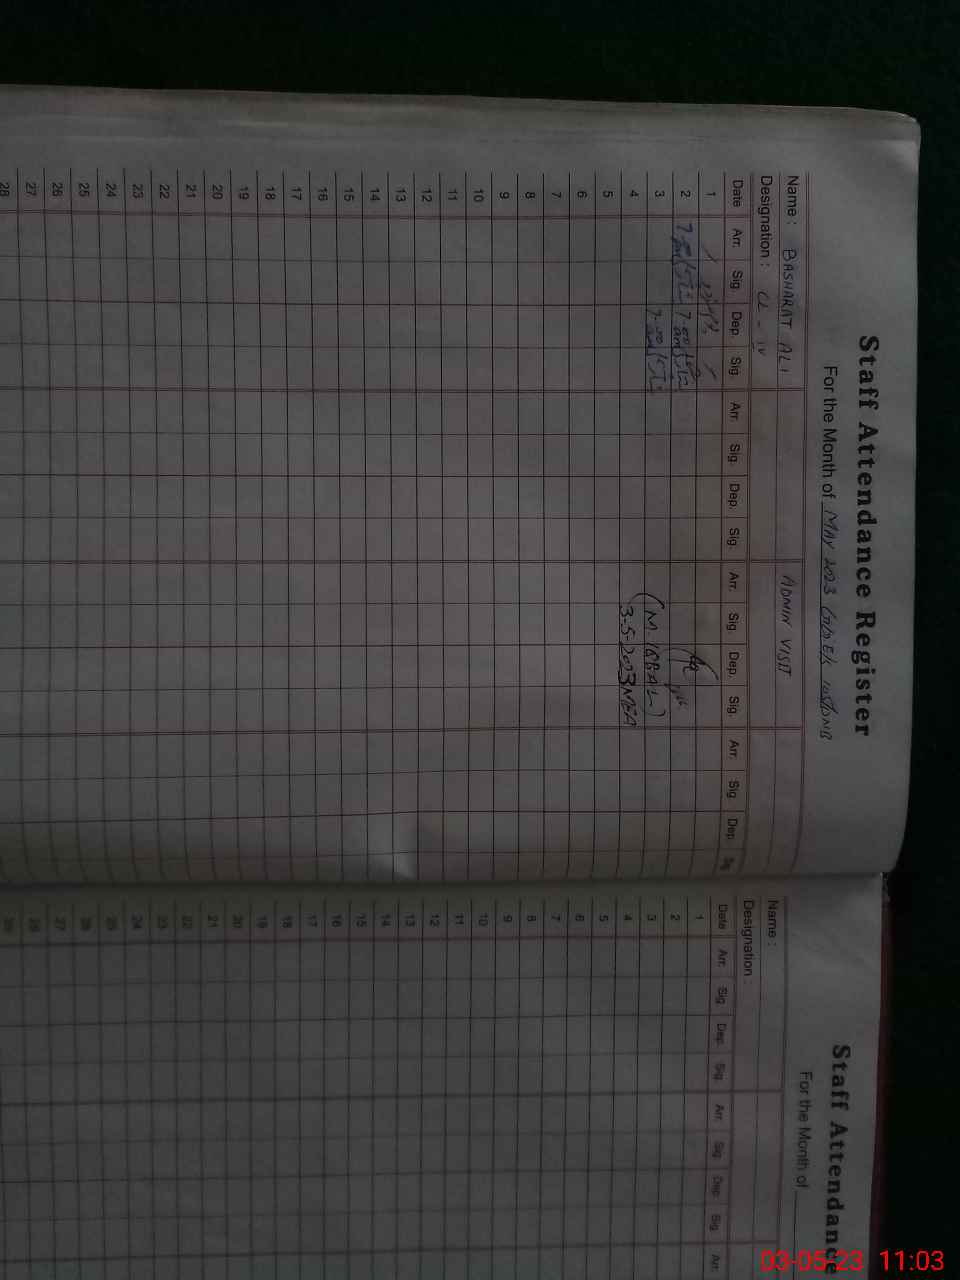 Staff Attendance Register
For the Month of MAY 2023
Name : BASHARAT ALI ADMIN VISIT
Designation : CL - IV
Date Arr. Sig. Dep. Sig. Arr. Sig. Dep. Sig. Arr. Sig. Dep. Sig. Arr. Sig Dep. Sig
1
2 7-00 am 7-00 am
3 7-00 am (M. IQBAL)
4 3-5-2023 MEA
5
6
7
8
9
10
11
12
13
14
15
16
17
18
19
20
21
22
23
24
25
26
27
28
Staff Attendance
For the Month of
Name :
Designation :
Date Arr. Sig Dep. Sig. Arr. Sig Dep. Sig Arr.
1
2
3
4
5
6
7
8
9
10
11
12
13
14
15
16
17
18
19
20
21
22
23
24
25
26
27
28
29
03-05-23 11:03